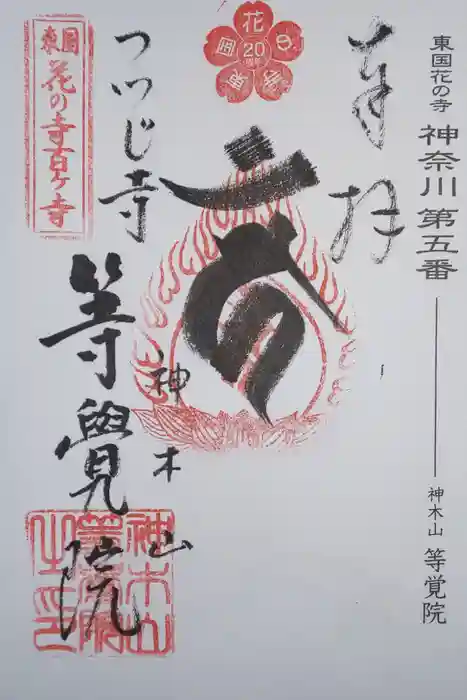 東国花の寺 神奈川 第五番 神木山 等覚院
奉拝
花の寺百ヶ寺
20
周年
つつじ寺
神木山
等覺院
東国
花の寺百ヶ寺
神木山
等覺院
之印